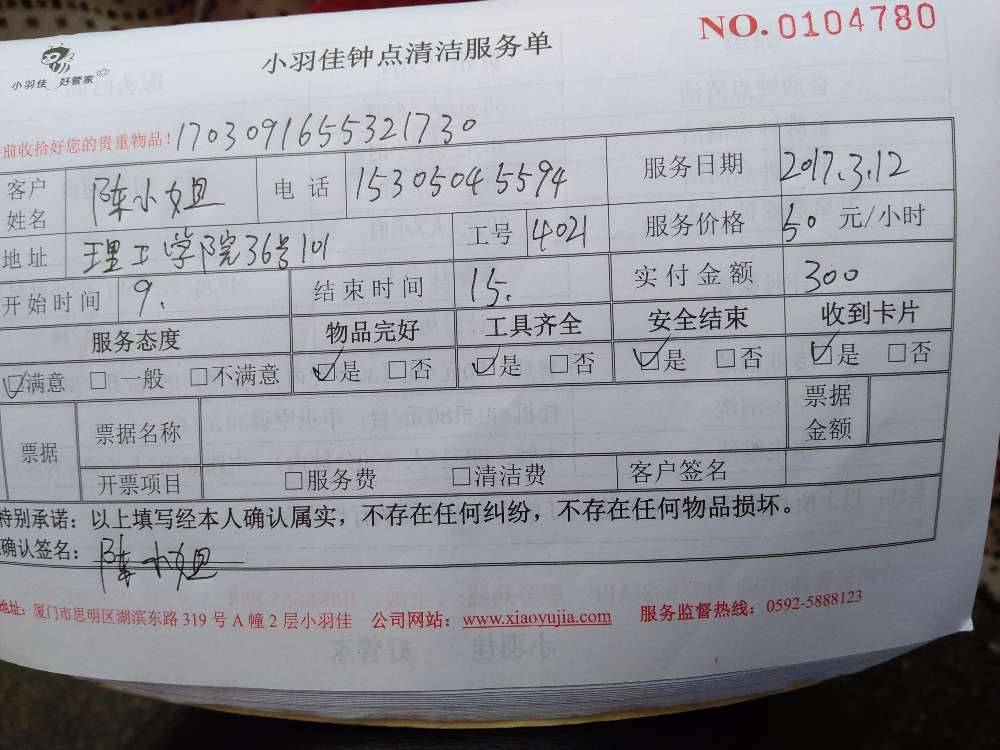 NO.0104780
小羽佳钟点清洁服务单
小羽佳 好管家
前收拾好您的贵重物品！170309165532​1730
客户姓名 陈小姐 电话 15305045594 服务日期 2017.3.12
地址 理工学院36号101 工号 4021 服务价格 50 元/小时
开始时间 9. 结束时间 15. 实付金额 300
服务态度 物品完好 工具齐全 安全结束 收到卡片
☑满意 □一般 □不满意 ☑是 □否 ☑是 □否 ☑是 □否 ☑是 □否
票据 票据名称 票据金额
开票项目 □服务费 □清洁费 客户签名
特别承诺：以上填写经本人确认属实，不存在任何纠纷，不存在任何物品损坏。
确认签名：陈小姐
地址：厦门市思明区湖滨东路319号A幢2层小羽佳 公司网站：www.xiaoyujia.com 服务监督热线：0592-5888123